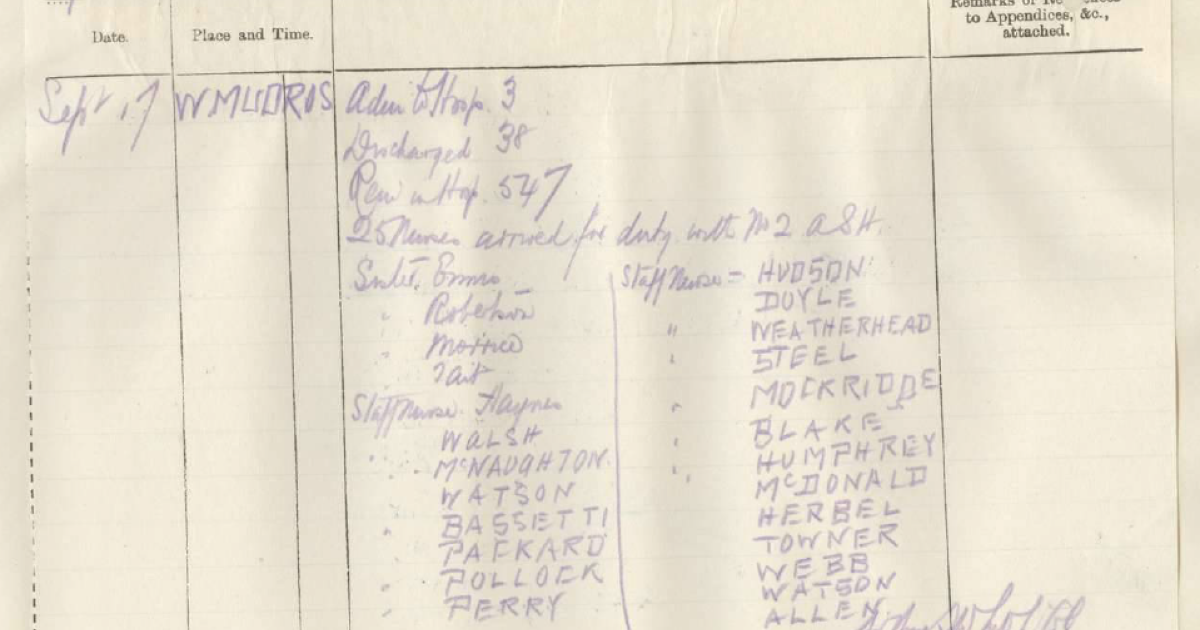 Remarks or
to Appendices, &c.,
attached.
Date.
Place and Time.
Sept 17
W MUDROS
Adm to Hosp. 3
Discharged 38
Rem in Hosp. 547
25 Nurses arrived for duty with No 2 ASH.
Sister,
" Robertson
" Morrice
" Tait
Staff Nurse. Haynes
WALSH
" McNAUGHTON
WATSON
" BASSETTI
PACKARD
" POLLOCK
" PERRY
Staff Nurse - HUDSON
DOYLE
" WEATHERHEAD
" STEEL
" MOCKRIDGE
" BLAKE
" HUMPHREY
" McDONALD
HERBEL
TOWNER
WEBB
WATSON
ALLEN